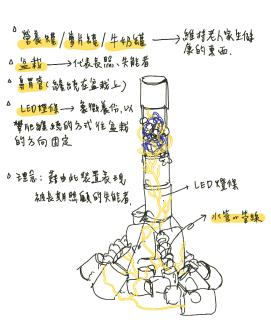 營養罐/藥片罐/牛奶罐 → 維持老人家生健
康的東西.
盆栽 → 代表長照、失能者
鼻胃管 (纏繞在盆栽上)
LED燈條 → 象徵養份,以
攀爬纏繞的方式往盆栽
的方向固定
理念: 藉由此裝置表現
被長期照顧的失能者
LED燈條
水管or管線